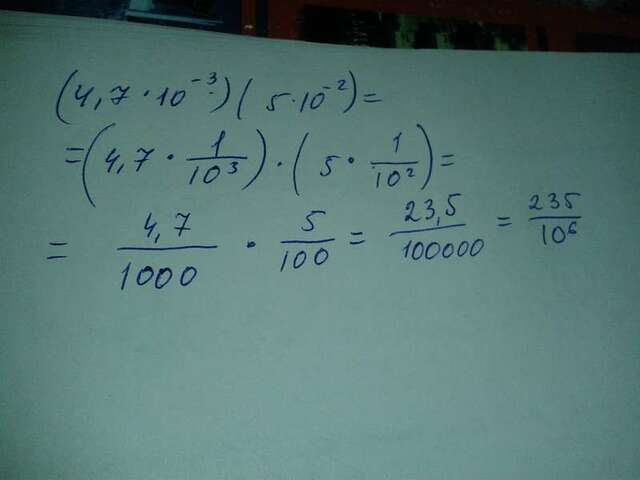 (4,7 · 10⁻³)(5·10⁻²)=
=(4,7 · 1/10³) · (5 · 1/10²)=
= 4,7/1000 · 5/100 = 23,5/100000 = 235/10⁶